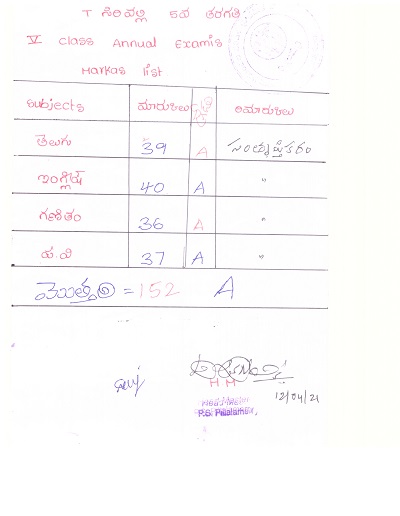 T సిరివల్లి 5వ తరగతి.
V Class Annual Examis
Markas list
Subjects మార్కులు గ్రేడ్ రిమార్కులు
తెలుగు 39 A సంతృప్తికరం
ఇంగ్లీషు 40 A "
గణితం 36 A "
ప.వి 37 A "
మొత్తం = 152 A
H M
12/04/21
Head Master